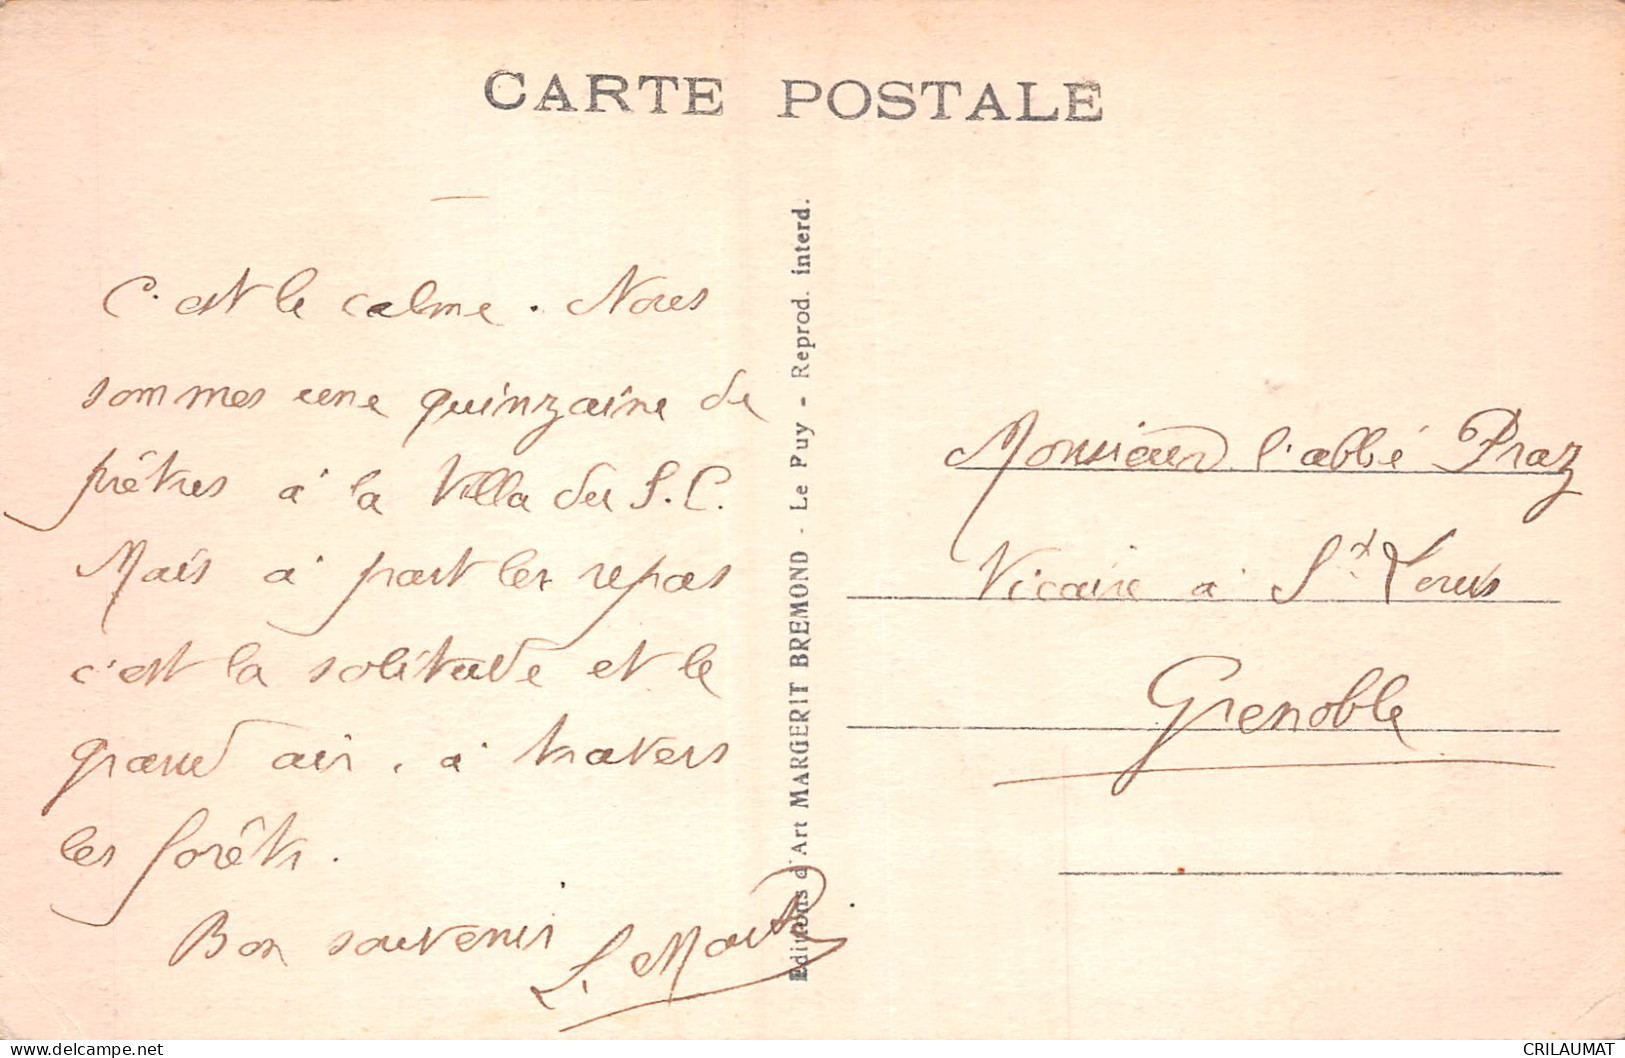 CARTE POSTALE
C'est le calme. Nous
sommes une quinzaine de
prêtres à la Villa du S. C.
Mais à part les repas
c'est la solitude et le
grand air, à travers
les forêts.
Bon souvenir
Editions d'Art MARGERIT BREMOND - Le Puy - Reprod. interd.
Monsieur l'abbé Praz
Vicaire à St Louis
Grenoble
CRILAUMAT